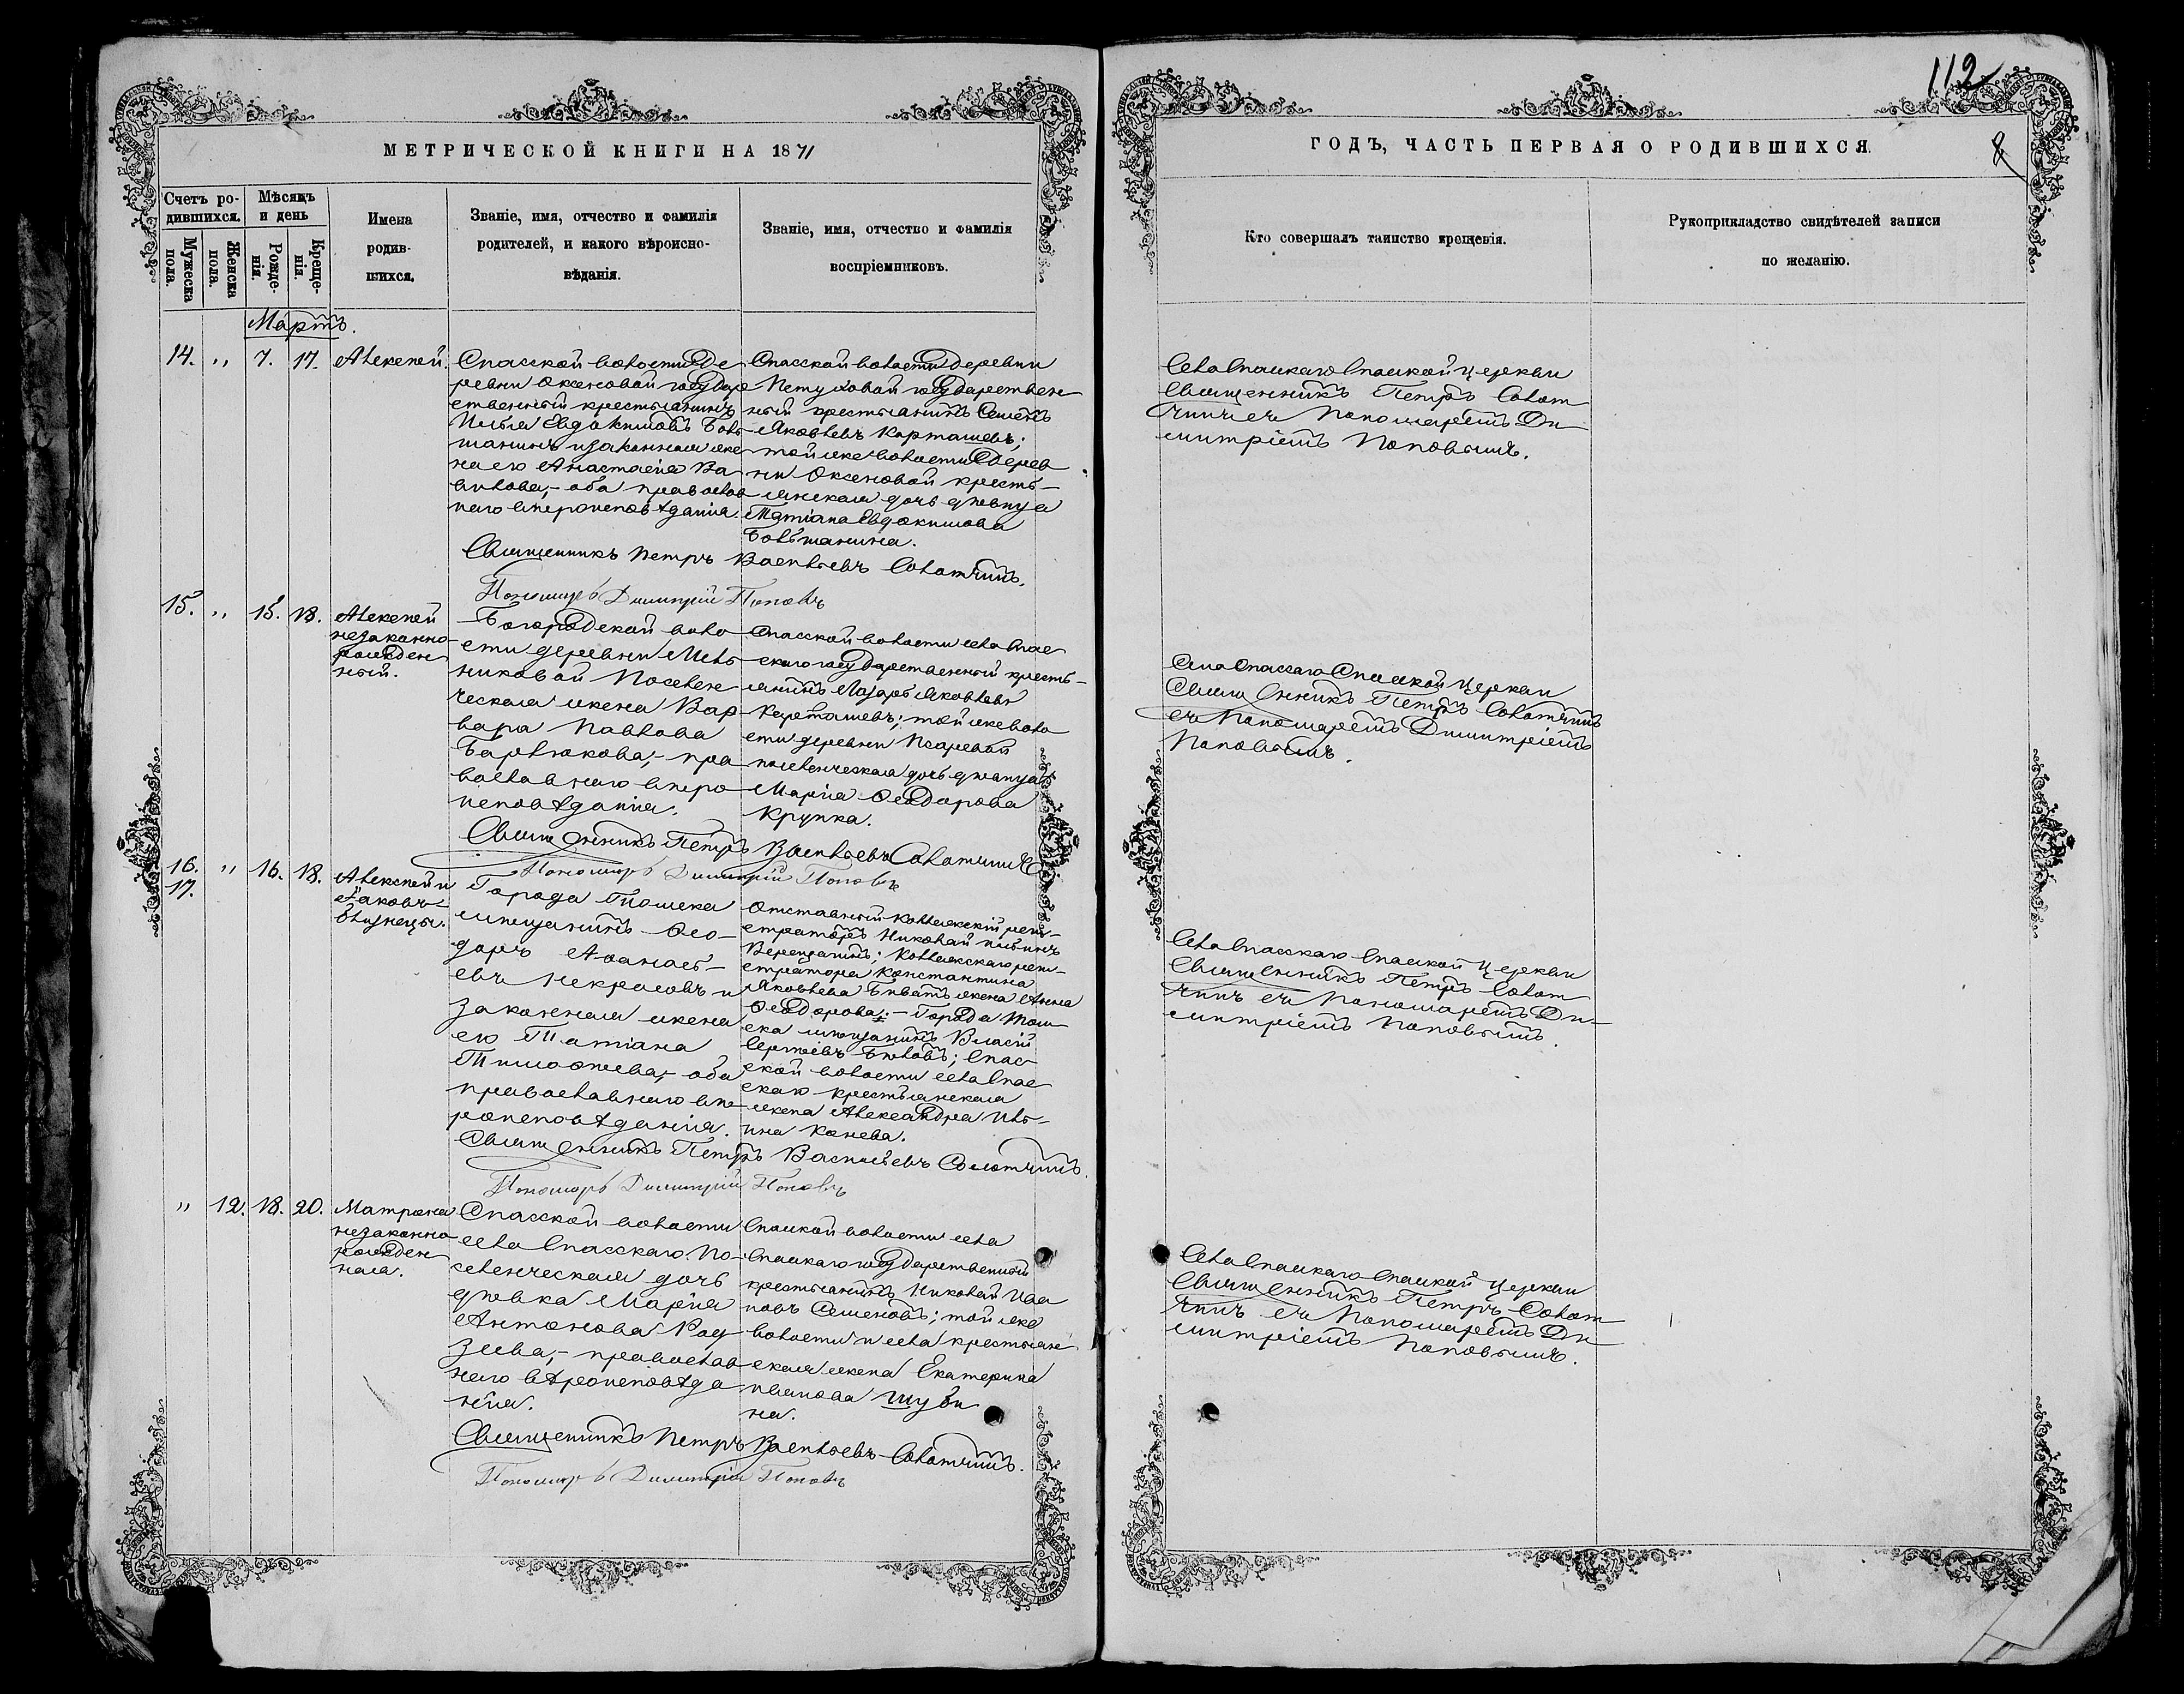 112
МЕТРИЧЕСКОЙ КНИГИ НА 1871
ГОДЪ, ЧАСТЬ ПЕРВАЯ О РОДИВШИХСЯ.
8
Счетъ ро-
дившихся.
Мужеска пола.
Женска пола.
Мѣсяцъ
и день
Рожде-
нія.
Креще-
нія.
Имена
родив-
шихся.
Званіе, имя, отчество и фамилія
родителей, и какого вѣроиспо-
вѣданія.
Званіе, имя, отчество и фамилія
воспріемниковъ.
Кто совершалъ таинство крещенія.
Рукоприкладство свидѣтелей записи
по желанію.
Мартъ.
14. " 7. 17. Алексѣй.
Спасской волости де
ревни Оксеновой государ
ственный крестьянинъ
Илья Евдокимовъ Боль
шанинъ и законная же
на его Анастасія Ва
вилова,- оба православ
наго вѣроисповѣданія.
Спасской волости деревни
Петуховой государствен
ный крестьянинъ Семенъ
Яковлевъ Карташевъ;
той же волости дерев
ни Оксеновой кресть-
янская дочь дѣвица
Татіана Евдокимова
Большанина.
Священникъ Петръ Васильевъ Солотчинъ.
Пономарь Димитрій Поповъ
Села Спаскаго Спаской церкви
Священникъ Петръ Солот
чинъ съ Пономаремъ Ди-
митріемъ Поповымъ.
15. " 15. 18. Алексѣй
незаконно
рожден
ный.
Богородской воло
сти деревни Мель
никовой Поселен
ческая жена Вар
вара Павлова
Барлюкова,- пра
вославнаго вѣро
исповѣданія.
Спасской волости села Спас
скаго государственный кресть-
янинъ Лазарь Яковлевъ
Карташевъ; той же воло
сти деревни Писаревой
поселенческая дочь дѣвица
Марія Ѳеодорова
Крупка.
Священникъ Петръ Васильевъ Солотчинъ
Пономарь Димитрій Поповъ
Села Спасскаго Спасской церкви
Священникъ Петръ Солотчинъ
съ Пономаремъ Димитріемъ
Поповымъ.
16.
17. " 16. 18. Алексѣй и
Іаковъ
близнецы.
Города Томска
мѣщанинъ Ѳео-
доръ Аѳанась-
евъ Некрасовъ и
законная жена
его Татіана
Тимоѳеева,- оба
православнаго вѣ-
роисповѣданія.
Отставный Коллежскій реги-
страторъ Николай Ильинъ
Верещагинъ; Коллежскаго реги-
стратора Константина
Яковлева жена Анна
Ѳеодорова;- Города Том-
ска мѣщанинъ Власій
Сергѣевъ Бѣловъ; Спас-
ской волости села Спас
скаго крестьянская
жена Александра Иль-
ина Конева.
Священникъ Петръ Васильевъ Солотчинъ.
Пономарь Димитрій Поповъ
Села Спасскаго Спаской церкви
Священникъ Петръ Солот
чинъ съ Пономаремъ Ди-
митріемъ Поповымъ.
" 12. 18. 20. Матрона
незаконно
рожден
ная.
Спасской волости
села Спасскаго по-
селенческая дочь
дѣвка Марія
Антонова Рад
зеева,- православ
наго вѣроисповѣда
нія.
Спаской волости села
Спаскаго государственный
крестьянинъ Николай Ива
новъ Семеновъ; той же
волости и села крестьян
ская жена Екатерина
Иванова Шуби
на.
Священникъ Петръ Васильевъ Солотчинъ.
Пономарь Димитрій Поповъ
Села Спаскаго Спаской церкви
Священникъ Петръ Солот
чинъ съ Пономаремъ Ди
митріемъ Поповымъ.